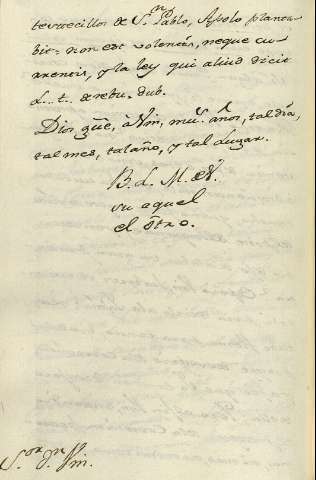 terrecillos de S.n Pablo, Apolo planta-
bit: non est volencis, neque cu-
rrencis, y la ley qui aliud dicit
L..t.. de rebu. dub.
Dios güe, à Vm, mus. as. anos, tal dia,
tal mes, tal año, y tal Lugar.
B. L. M. de V.
su aquel
el òtro.
S.or d.n Vm.